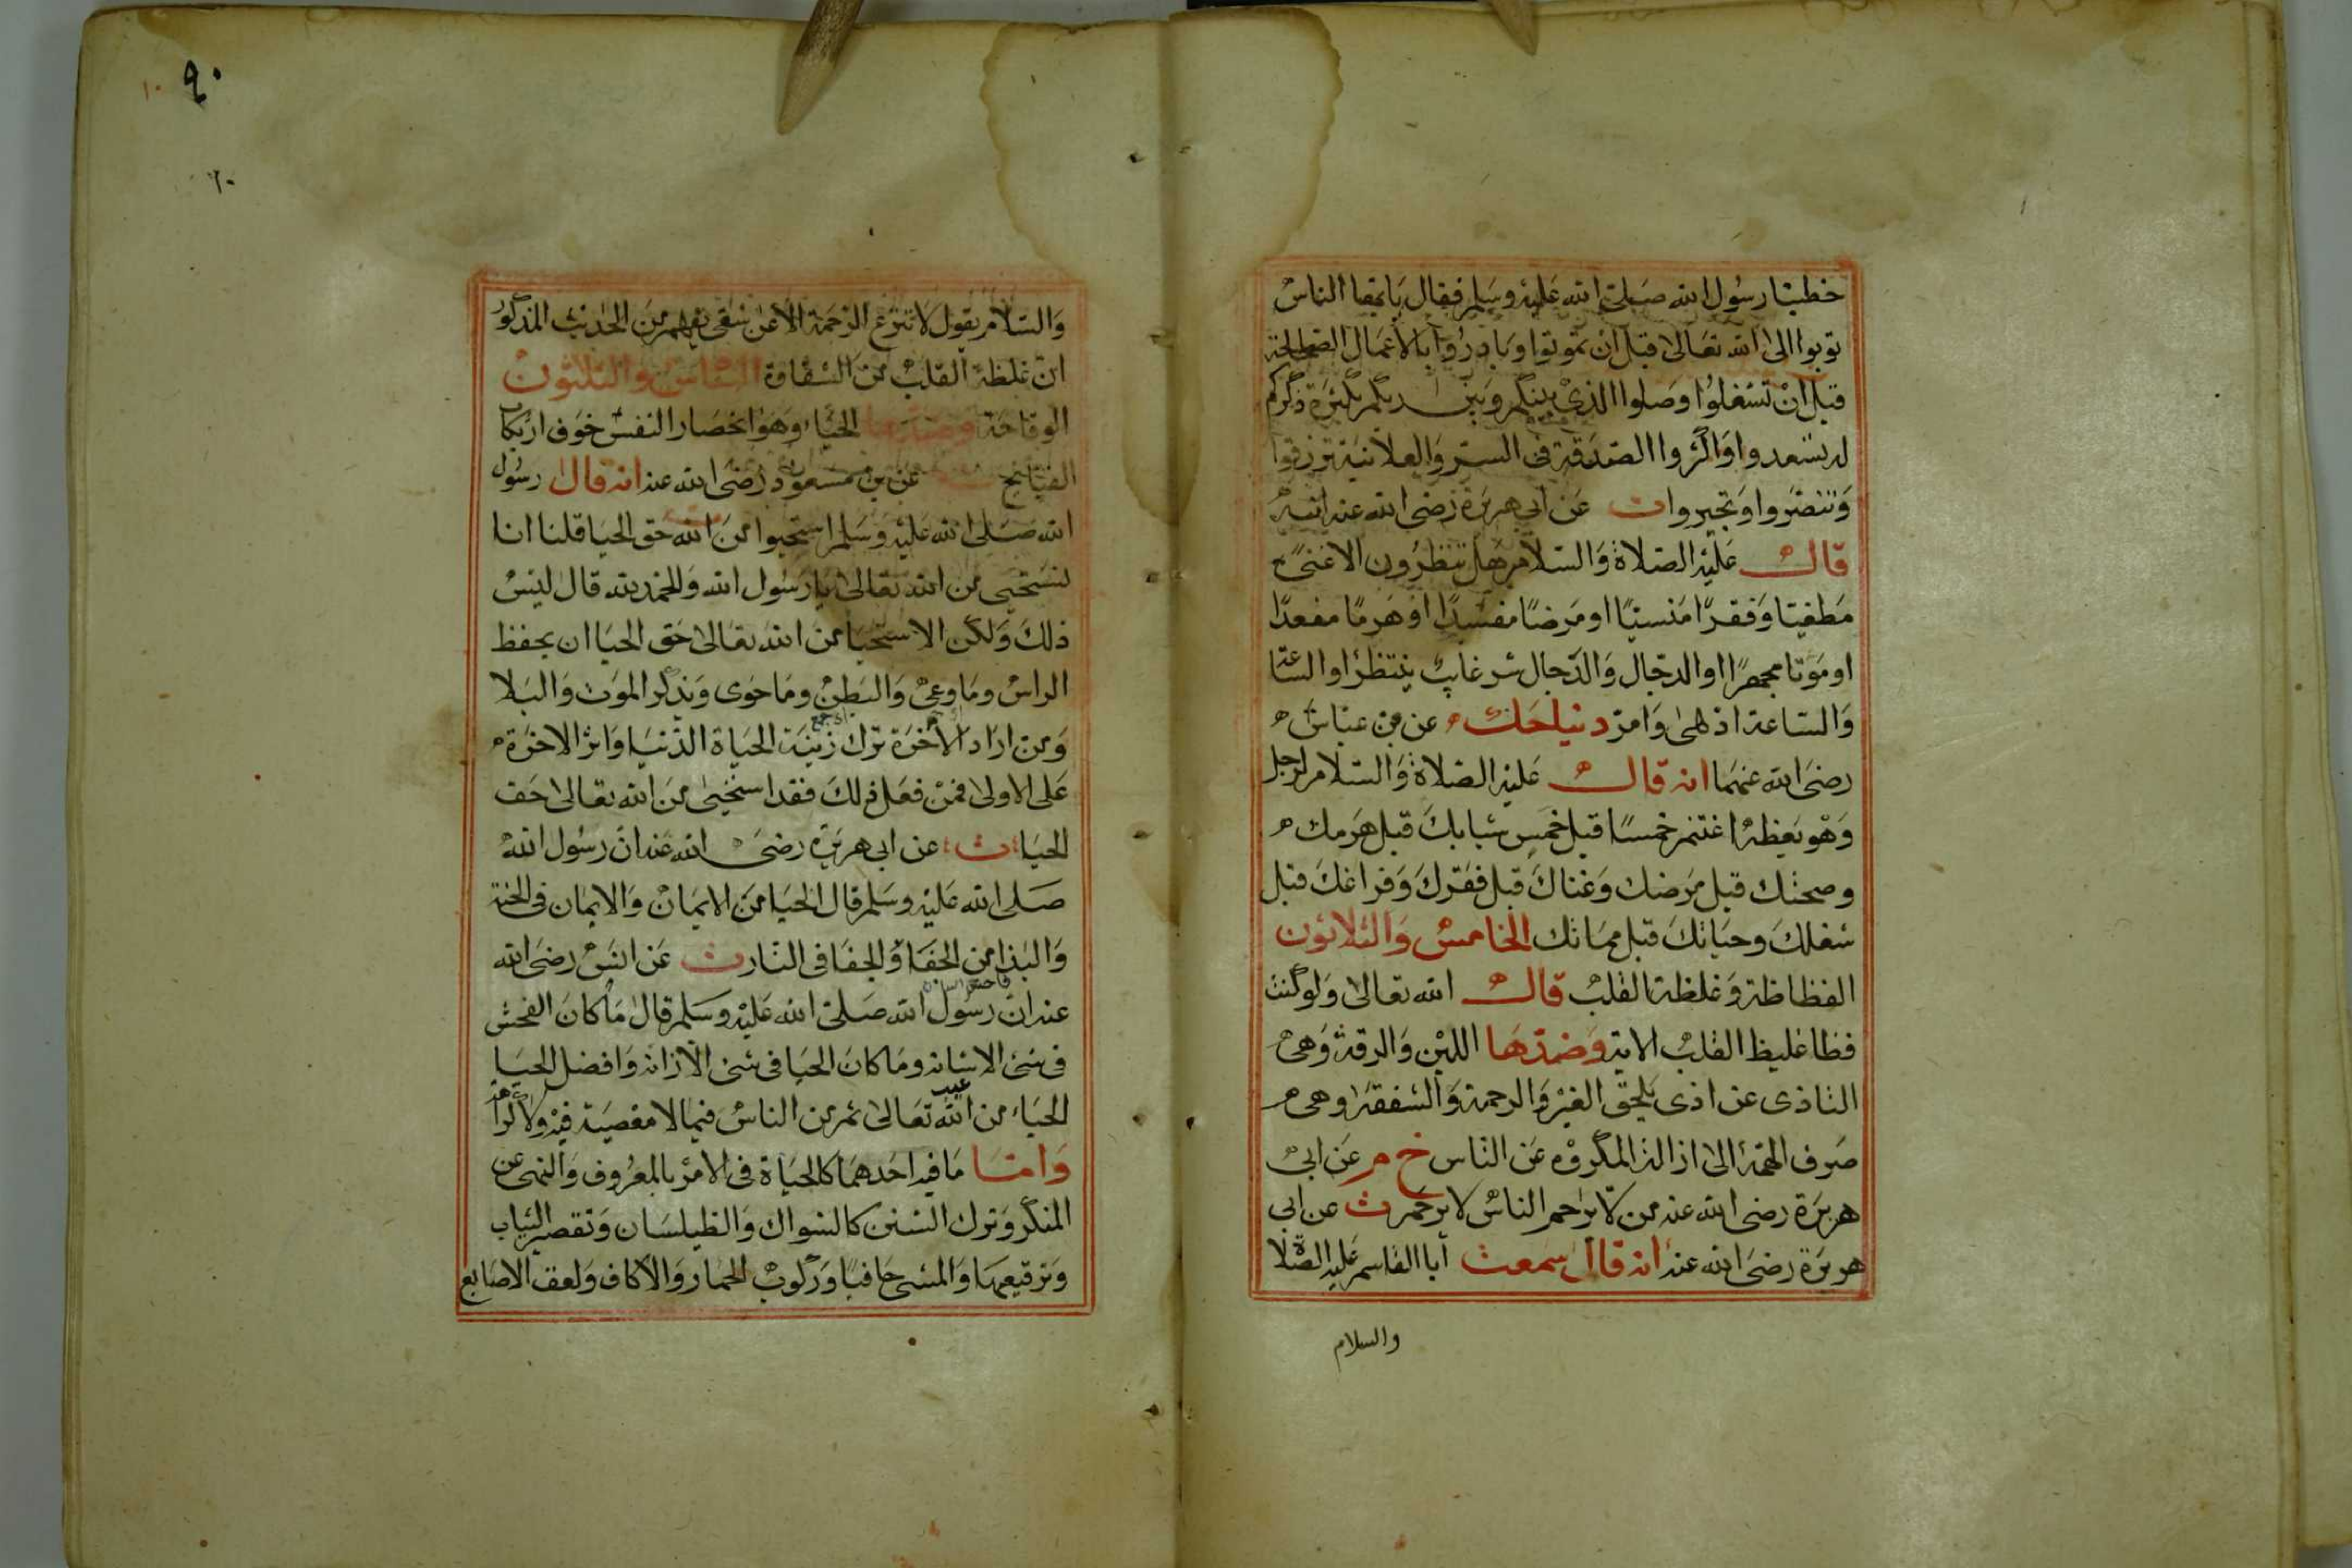 خطبنا رسول الله صلى الله عليه وسلم فقال يا ايها الناس
توبوا الى الله تعالى قبل ان تموتوا وبادروا بالاعمال الصالحة
قبل ان تشغلوا وصلوا الذى بينكم وبين ربكم بكثرة ذكركم
له تسعدوا واكثروا الصدقة فى السر والعلانية ترزقوا
وتنصروا وتجبروا ت عن ابى هريرة رضى الله عنه انه
قال عليه الصلاة والسلام هل تنظرون الا غنى
مطغيا وفقرا منسيا او مرضا مفسدا او هرما مفندا
او موتا مجهزا او الدجال والدجال شر غايب ينتظر او الساعة
والساعة ادهى وامر دنيا حك عن بن عباس
رضى الله عنهما انه قال عليه الصلاة والسلام لرجل
وهو يعظه اغتنم خمسا قبل خمس شبابك قبل هرمك
وصحتك قبل مرضك وغناك قبل فقرك وفراغك قبل
شغلك وحياتك قبل مماتك الخامس والثلاثون
الفظاظة وغلظة القلب قال الله تعالى ولو كنت
فظا غليظ القلب الاية وضدها اللين والرقة وهى
التاذى عن اذى يلحق الغير والرحمة والشفقة وهى
صرف الهمة الى ازالة المكروه عن الناس خ م عن ابى
هريرة رضى الله عنه من لا يرحم الناس لا يرحم ت عن ابى
هريرة رضى الله عنه انه قال سمعت ابا القاسم عليه الصلاة
والسلام
٩٠
١٠
٢٠
والسلام يقول لا تنزع الرحمة الا عن شقى يفهم من الحديث المذكور
ان غلظة القلب من الشقاوة السادس والثلاثون
الوقاحة وضدها الحياء وهو انحصار النفس خوف ارتكاب
القبايح عن بن مسعود رضى الله عنه انه قال رسول
الله صلى الله عليه وسلم استحيوا من الله حق الحيا قلنا انا
لنستحيى من الله تعالى يا رسول الله والحمد لله قال ليس
ذلك ولكن الاستحيا من الله تعالى حق الحيا ان يحفظ
الراس وما وعى والبطن وما حوى ويذكر الموت والبلا
ومن اراد الاخرة ترك زينة الحياة الدنيا واثر الاخرة
على الاولى فمن فعل ذلك فقد استحيى من الله تعالى حق
الحيا ت عن ابى هريرة رضى الله عنه ان رسول الله
صلى الله عليه وسلم قال الحيا من الايمان والايمان فى الجنة
والبذا من الجفا والجفا فى النار ت عن انس رضى الله
عنه ان رسول الله صلى الله عليه وسلم قال ما كان الفحش
فى شئ الا شانه وما كان الحيا فى شئ الا زانه وافضل الحيا
الحياء من الله تعالى ثم من الناس فيما لا معصية فيه ولا كراهة
واما ما فيه احدهما كالحياة فى الامر بالمعروف والنهى عن
المنكر وترك السنن كالسواك والطيلسان وتقصير الثياب
وترقيعها والمشى حافيا وركوب الحمار والاكاف ولعق الاصابع